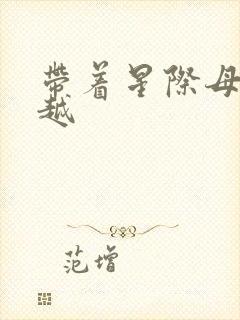 帶着星際母
越
范增